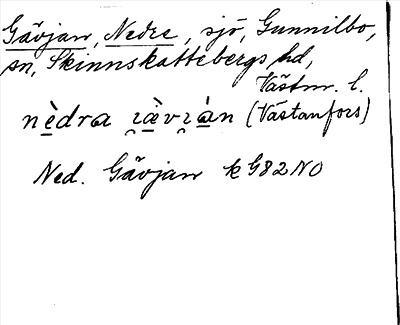 Gävjan, Nedre, sjö, Gunnilbo,
sn, Skinnskattebergs hd,
Västm. l.
nèdra i̯ä̀vi̯àn (Västanfors)
Ned. Gävjan k G82NO